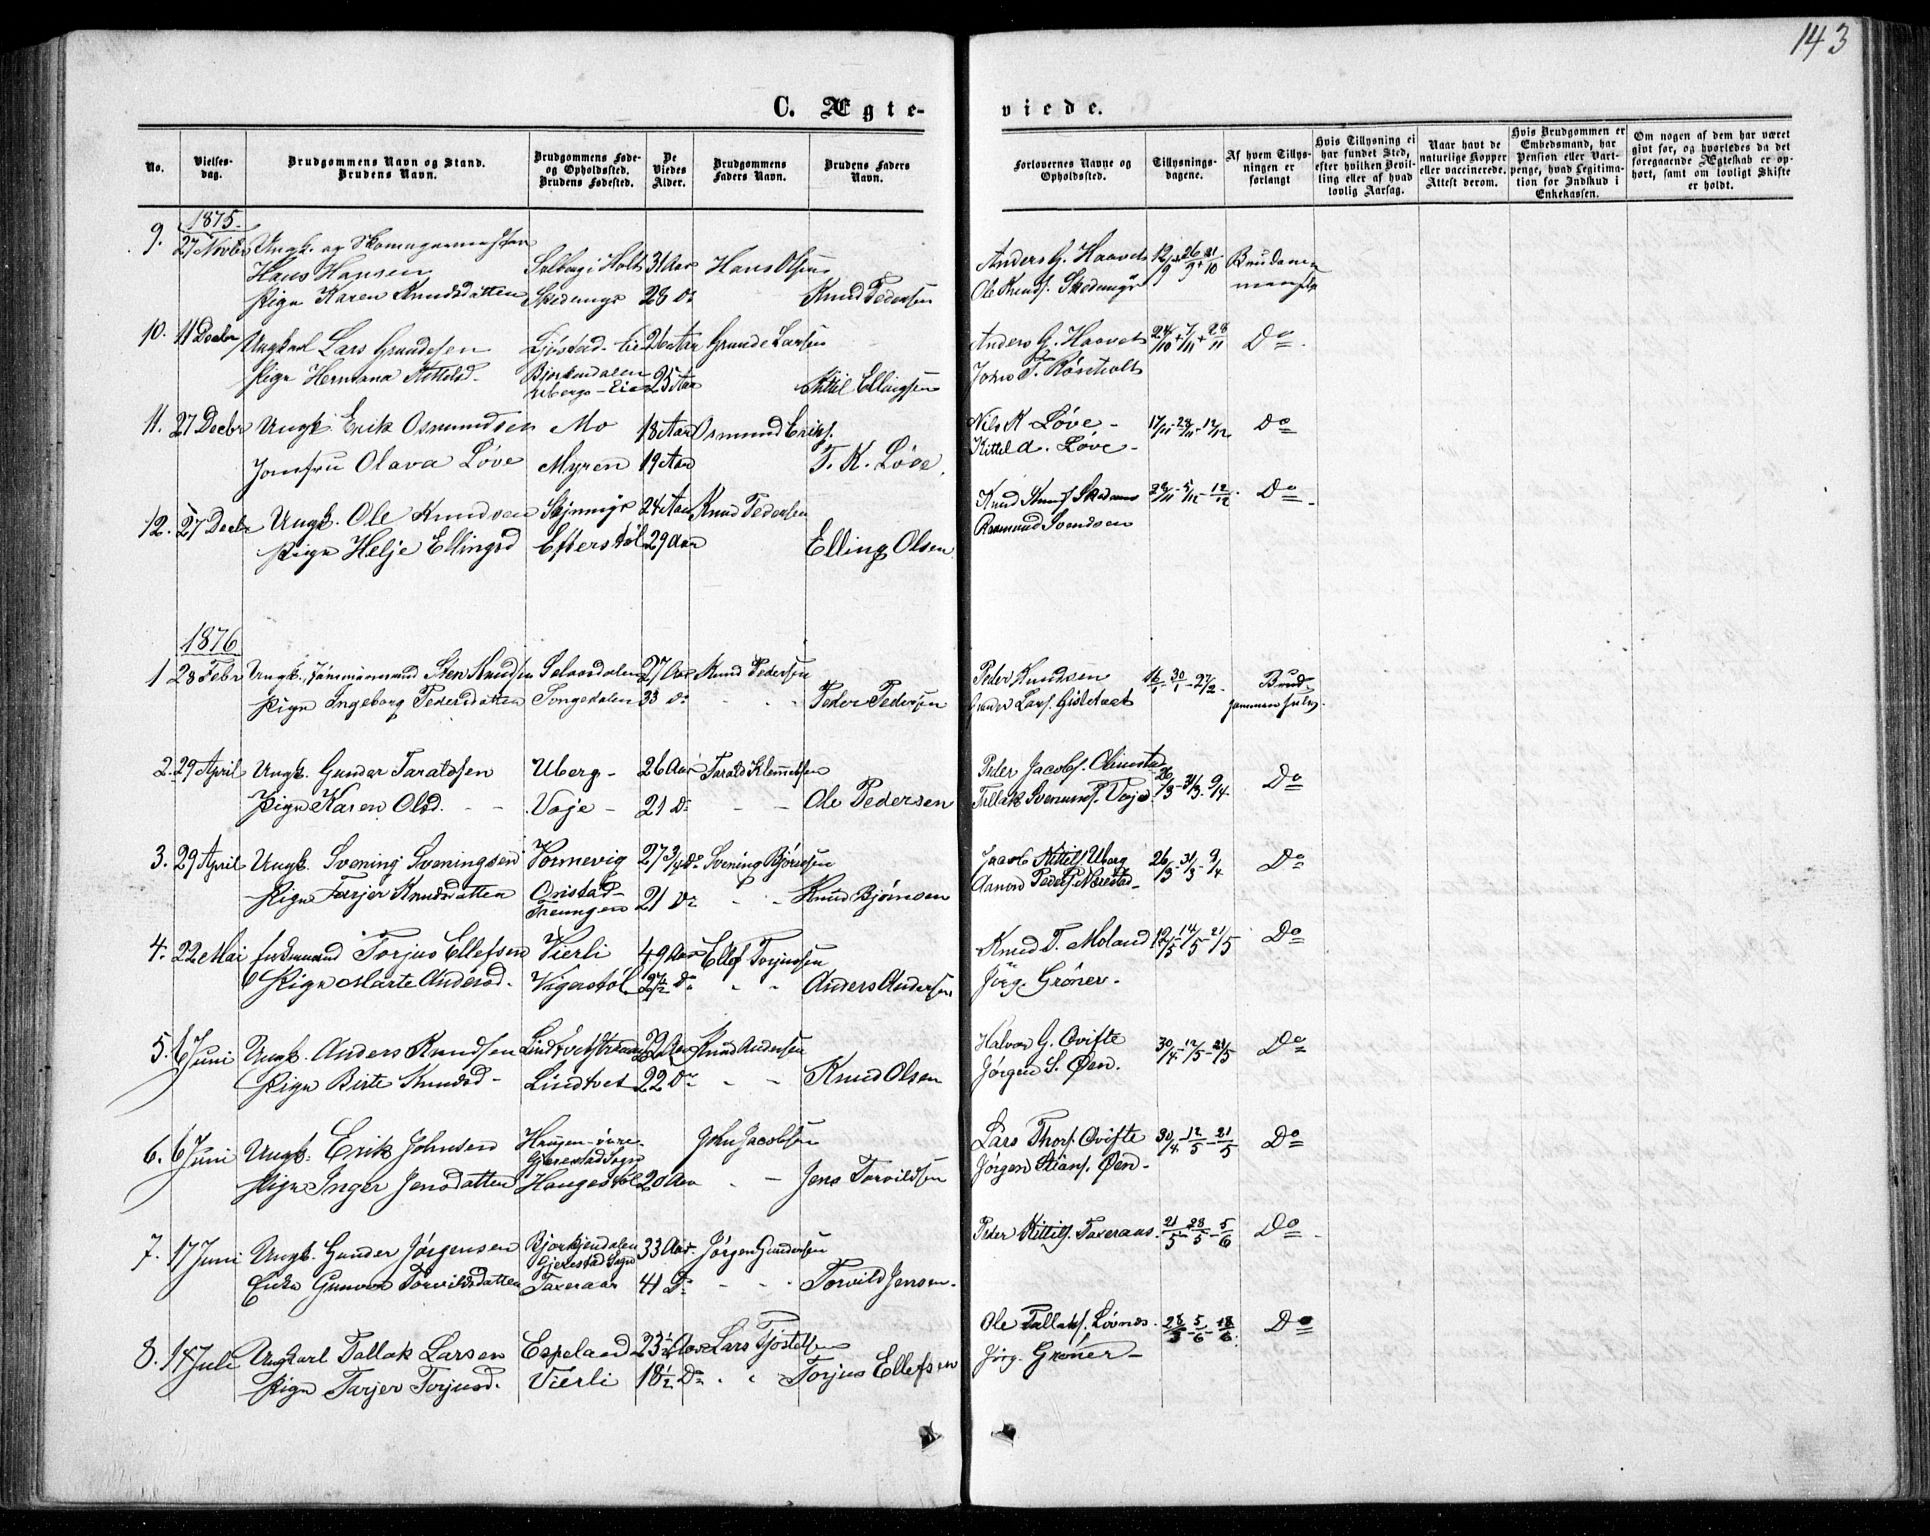 143
C. Ægte-
viede.
No.
Vielses-
dag.
Brudgommens Navn og Stand.
Brudens Navn.
Brudgommens Føde-
og Opholdssted.
Brudens Fødested.
De
Viedes
Alder.
Brudgommens
Faders Navn.
Brudens Faders
Navn.
Forlovernes Navne og
Opholdssted.
Tillysnings-
dagene.
Af hvem Tillys-
ningen er
forlangt
Hvis Tillysning ei
har fundet Sted,
efter hvilken Bevil-
ling eller af hvad
lovlig Aarsag.
Naar havt de
naturlige Kopper
eller vaccinerede.
Attest derom.
Hvis Brudgommen er
Embedsmand, har
Pension eller Vart-
penge, hvad Legitima-
tion for Indskud i
Enkekassen.
Om nogen af dem har været
givt for, og hvorledes da det
foregaaende Ægteskab er op-
hørt, samt om lovligt Skifte
er holdt.
1875.
9. 27 Novbr Ungk. og
Hans Hansen Solberg i Holt 31 Aar Hans Olsen
Pige Karen Knudsdatter 28 Do Knud Pedersen
Anders G. Haavet 12/9 26/9 + 21/10
Ole Knuds.
10. 11 Decbr Ungkarl Lars Grundesen 26 Aar Grunde Larsen
Pige Hermana Kittelsd. Bjorkendalen 25 Aar Kittil Ellingsen
Anders G. Haavet 24/10 + 7/11 + 28/11 Do
John
11. 27 Decbr Ungk. Erik Osmundsen Mo 18 Aar Osmund Eriks.
Jomfru Olava Løve Myren 19 Aar T. K. Løve.
Nils K Løve - 17/11 - 28/11 - 12/12 Do
Kittel A. Løve -
12. 27 Decbr Ungk. Ole Knudsen 24 Aar Knud Pedersen
Pige Helje Ellingsd Efterstøl 29 Aar Elling Olsen
Knud Knuds. 28/11 - 5/12 - 12/12 Do
Svendsen
1876
1 28 Febr Ungk., Tømmermand Sten Knudsen Selaasdalen 27 Aar Knud Pedersen
Pige Ingeborg Pedersdatter Songedalen 33 Do Peder Pedersen
Peder Knudsen 16/1 - 30/1 - 27/2 Brud-
Gunder Lars. gommen selv.
2. 29 April Ungk. Gunder Taraldsen Uberg - 26 Aar Tarald Klemmetsen
Pige Karen Olsd. Voje - 21 Do Ole Pedersen
Peder Jacobs. 26/3 - 31/3. 9/4. Do
Tallak
3. 29 April Ungk. Svening Sveningsen Vormevig 27 3/4 Do Svening Bjørnsen
Pige Tarjer Knudsdatter Treungen 21 Do Knud Bjørnsen
Jacob Kittils. Uberg 26/3 - 31/3 - 9/4 Do
Aanon Peders. Nærestad -
4. 22 Mai Enkemand Torjus Ellefsen Vierli 49 Aar Ellef Torjussen
Pige Marte Andersd. Vigerstøl 27 1/2 Do Anders Andersen
Knud T. Moland 12/5 - 14/5 - 21/5 Do
Jörg. Grøner.
5. 6 Juni Ungk. Anders Knudsen 22 Aar Knud Andersen
Pige Birte Knudsd - Lindtvet 22 Do Knud Olsen
Halvor G. Qvifte 30/4 - 12/5 - 21/5 Do
Jørgen S. Øen.
6. 6 Juni Ungk. Erik Johnsen Haugen - øvre John Jacobsen
Gjerestad Sogn
Pige Inger Jensdatter Haugestøl 20 Aar Jens Torvildsen
Lars Thors. Qvifte 30/4 - 12/5 - 21/5 Do
Jørgen Stians. Øen -
7. 17 Juni Ungk. Gunder Jørgensen Bjorkjendalen 33 Aar Jørgen Gundersen
Gjerestad Sogn
Enke Gunvor Torvildsdatter Taxeraas 41 Do Torvild Jensen.
Peder Kittils. Taxeraas 21/5 - 28/5 - 5/6 Do
8. 14 Juli Ungkarl Tallak Larsen Espeland 23 1/2 Aar Lars Tjostelsen
Pige Tarjer Torjusd. Vierli 18 1/2 Do Torjus Ellefsen
Ole Tallaks. Løvnes. 28/5 - 5/6 - 18/6. Do
Jörg. Grøner -